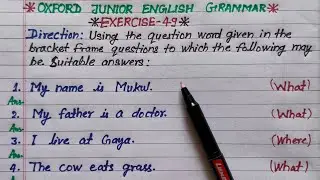 *OXFORD JUNIOR ENGLISH GRAMMAR*
*EXERCISE-49*
Direction: Using the question word given in the
bracket frame questions to which the following may
be suitable answers:
1. My name is Mukul. (What)
Ans.
2. My father is a doctor. (What)
Ans.
3. I live at Gaya. (Where)
Ans.
4. The cow eats grass. (What)